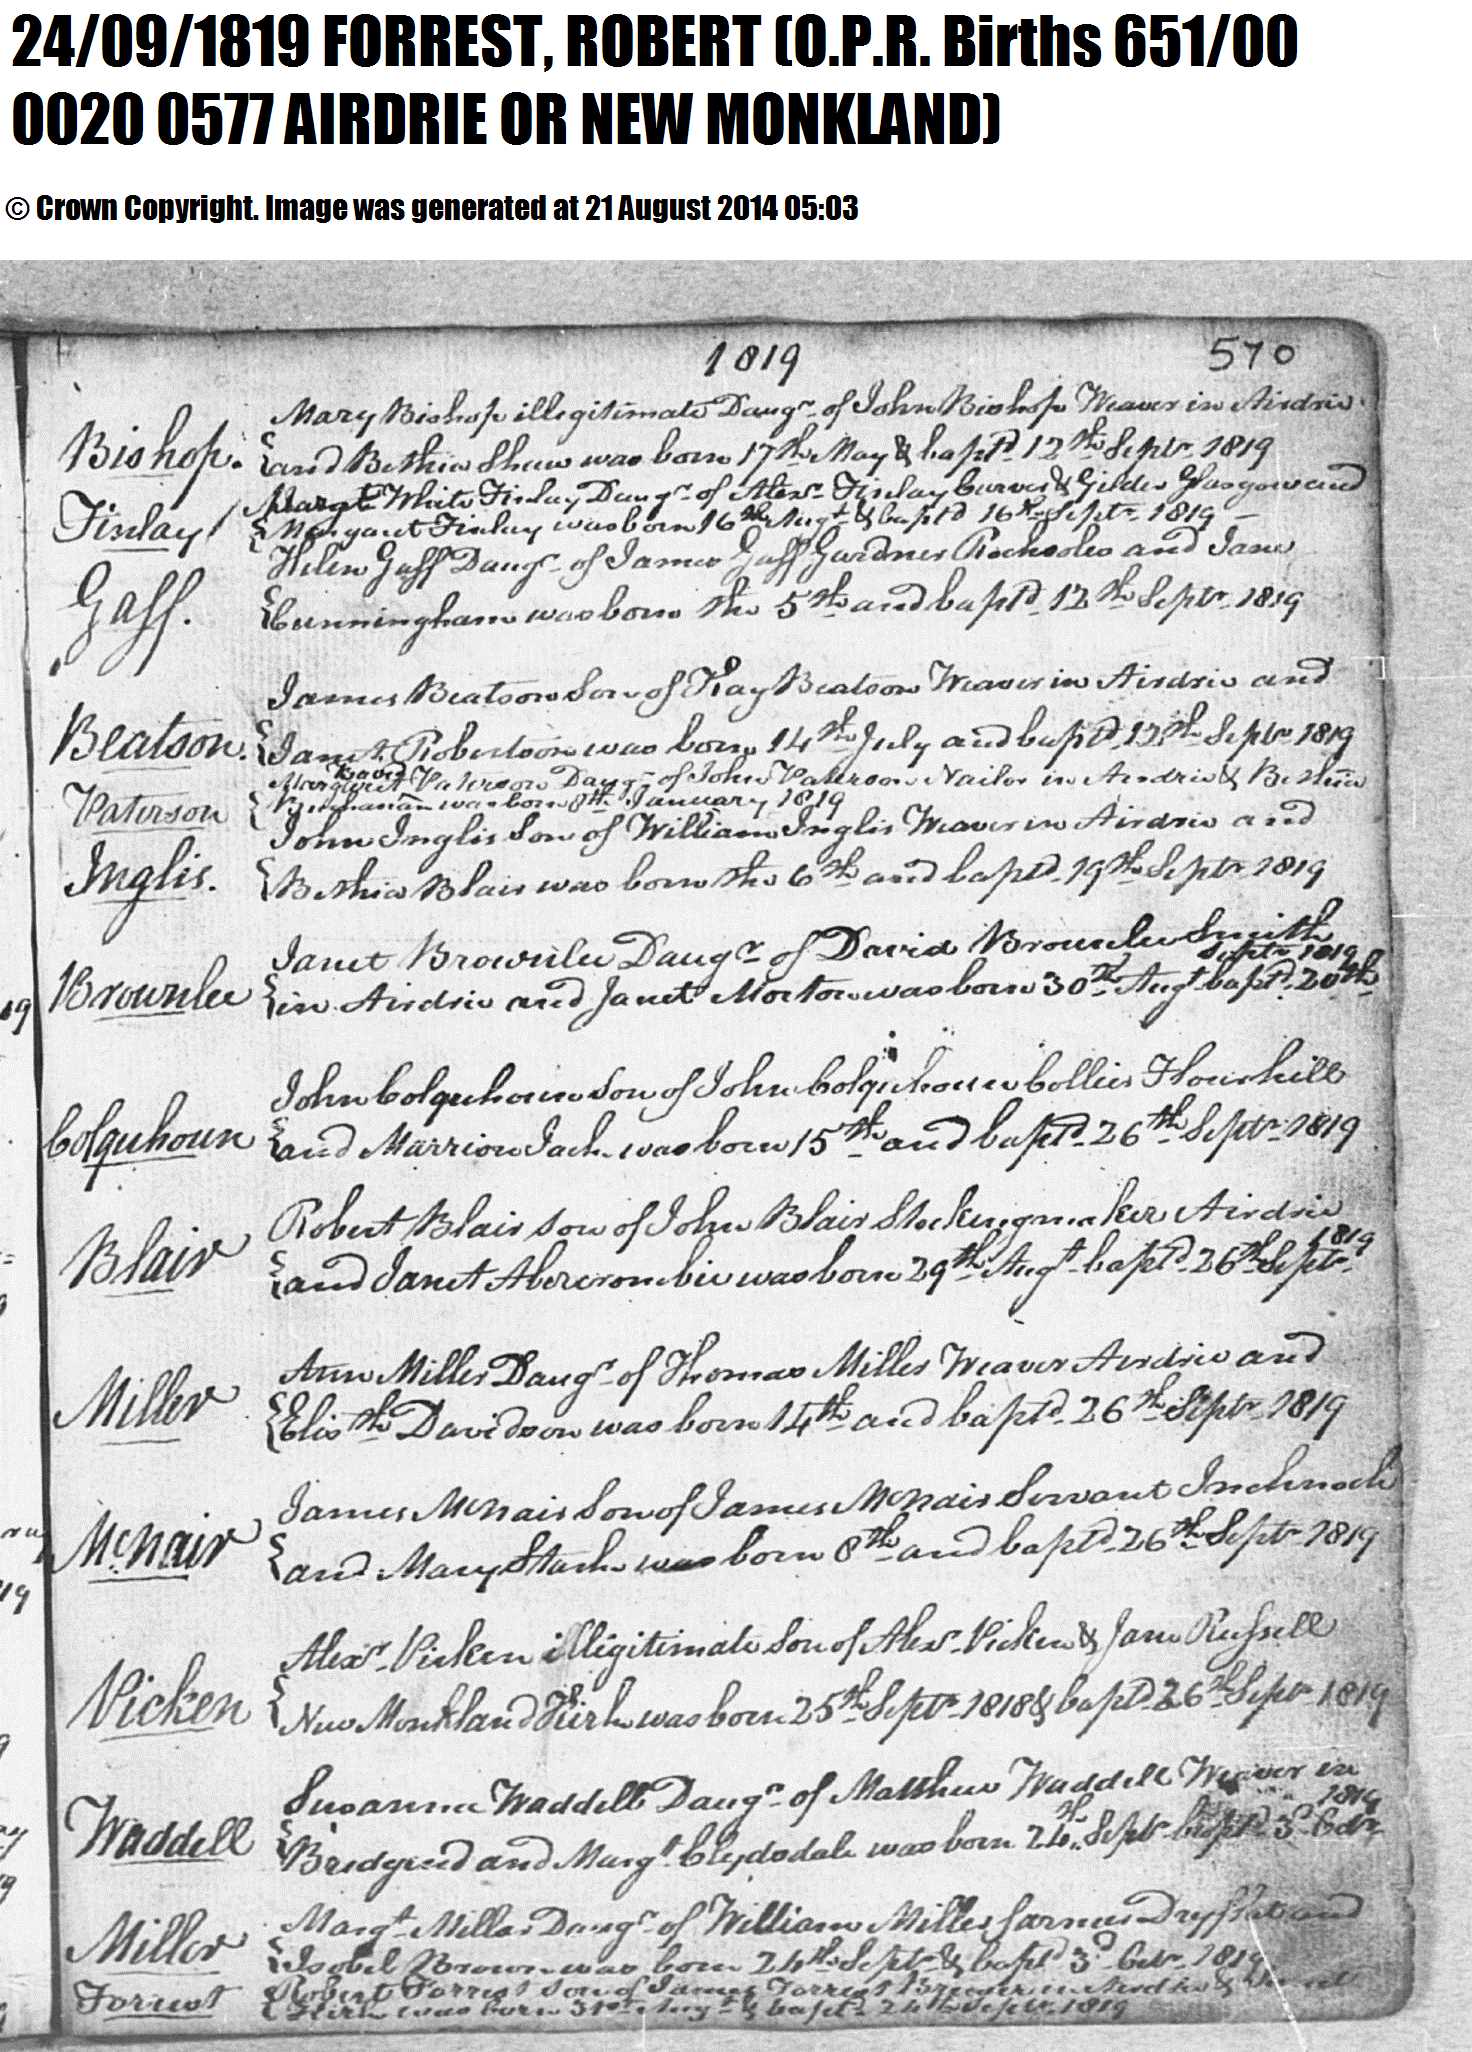 24/09/1819 FORREST, ROBERT (O.P.R. Births 651/00
0020 0577 AIRDRIE OR NEW MONKLAND)
© Crown Copyright. Image was generated at 21 August 2014 05:03
1819 570
Mary Bishop illegitimate Daugr. of John Bishop Weaver in Airdrie
Bishop. and Bethia Shaw was born 17th May & baptd. 12th Septr. 1819
Margt White Finlay Daugr. of Alexr. Finlay Carver & Gilder Glasgow and
Finlay Margaret Finlay was born 16th Augt & baptd 16th Septr. 1819
Helen Gaff Daugr. of James Gaff Gardner Rochsoles and Jane
Gaff. Cunningham was born the 5th and baptd. 12th Septr. 1819
James Beatson Son of Hay Beatson Weaver in Airdrie and
Beatson. Janet Robertson was born 14th July and baptd. 12th Septr. 1819
Margaret Paterson Daugr. of John Paterson Nailor in Airdrie & Bethia
Paterson Buchanan was born 8th January 1819
John Inglis Son of William Inglis Weaver in Airdrie and
Inglis. Bethia Blair was born the 6th and baptd. 19th Septr. 1819
Janet Brownlee Daugr. of David Brownlee Smith
Septr. 1819
Brownlee in Airdrie and Janet Morton was born 30th Augt. baptd. 20th
John Colquhoun Son of John Colquhoun Collier Flowrhill
Colquhoun and Marrion Jack was born 15th and baptd. 26th Septr. 1819
Robert Blair Son of John Blair Stockingmaker Airdrie
1819
Blair and Janet Abercrombie was born 29th Augt. baptd. 26th Septr.
Ann Miller Daugr. of Thomas Miller Weaver Airdrie and
Miller Elisth Davidson was born 14th and baptd. 26th Septr. 1819
James McNair Son of James McNair Servant Inchnock
McNair and Mary Stark was born 8th and baptd. 26th Septr. 1819
Alexr. Vicken illegitimate Son of Alexr. Vicken & Jane Russell
Vicken New Monkland Kirk was born 25th Septr. 1818 & baptd. 26th Septr. 1819
Susanna Waddell Daugr. of Matthew Waddell Weaver in
1819
Waddell Bredgend and Margt. Clydsdale was born 24th Septr. baptd. 3d. Octr.
Margt. Miller Daugr. of William Miller farmer and
Miller Isobel Brown was born 24th Septr. & baptd 3d Octr. 1819
Robert Forrest Son of James Forrest Brewer in Airdrie & Janet
Forrest Kirk was born 31st Augt. & bapt. 24th Septr. 1819